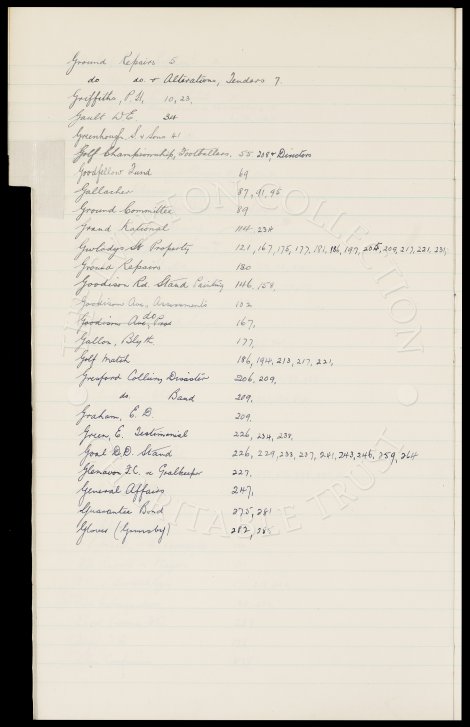 Ground Repairs 5
do do. & Alterations, Tenders 7.
Griffiths, P.H, 10, 23,
Gault W.E 34
Greenhough S. & Sons 41
Golf Championship, Footballers. 55 208 & Directors
Goodfellow Fund 69
Gallacher 87, 91, 95
Ground Committee 89
Grand National 114 234
Gwladys St Property 121, 167, 175, 177, 181, 186, 197, 205, 209, 217, 221, 231,
Ground Repairs 130
Goodison Rd. Stand Painting 146, 154
Goodison Ave, Assessments 132
Goodison Ave, do 167,
Gallon, Blyth 177,
Golf Match 186, 194, 213, 217, 221,
Gresford Colliery Disaster 206, 209,
do. Band 209,
Graham, E. D. 209.
Green, E. Testimonial 226, 234, 238,
Goal D.D. Stand 226, 229, 233, 237, 241, 243, 246, 259, 264
Glenavon F.C. & Goalkeeper 227.
General Affairs 247,
Guarantee Bond 275, 281
Glover (Grimsby) 282, 285
THE EVERTON COLLECTION
CHARITABLE TRUST